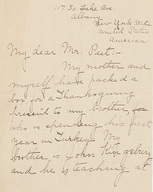 So. Lake Ave.
Albany
New York State
United States
America
My dear Mr. Peet:-
My mother and
myself have packed a
box for a Thanksgiving
present to my brother,
who is spending his first
year in Turkey. My
brother is John Kingsbury
and he is teaching at